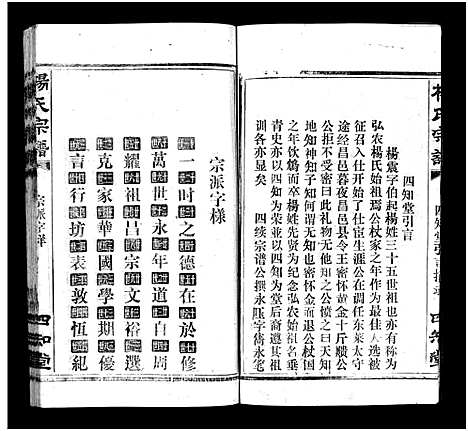 楊氏宗譜
四知堂引言
四知堂
四知堂引言
楊震字伯起楊姓三十五世祖也亦有称为
弘农楊氏始祖焉公杖家之年作为最佳人选被
征召入仕开始了仕宦生涯公调任东莱太守
途经昌邑暮夜昌邑县令王密怀黄金十斤馈公
公拒不受密曰此礼仪无他知之公愤之曰天知
地知神知子知何谓无知也密怀金而退公杖国
之年饮鸩而卒楊姓先贤为纪念弘农始祖名垂
青史亦以四知为荣並以四知为堂后裔遵其祖
训各亦显矣
四续宗谱公撰永
宗派字样
一時之德在於修
萬世永年道自周
耀祖昌宗文裕選
克家華國學期優
言行坊表敦恆紀
楊氏宗譜
宗派字样
四知堂